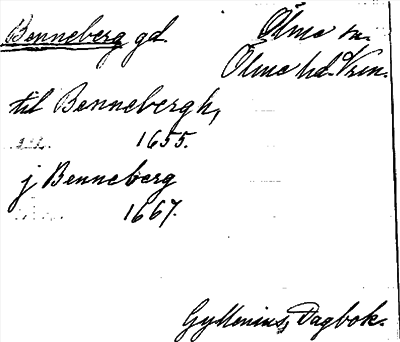 Benneberg gd. Ölme sn.
Ölme hd. Vrm.
til Bennebergh,
1655.
j Benneberg
1667.
Gyllenius, Dagbok.